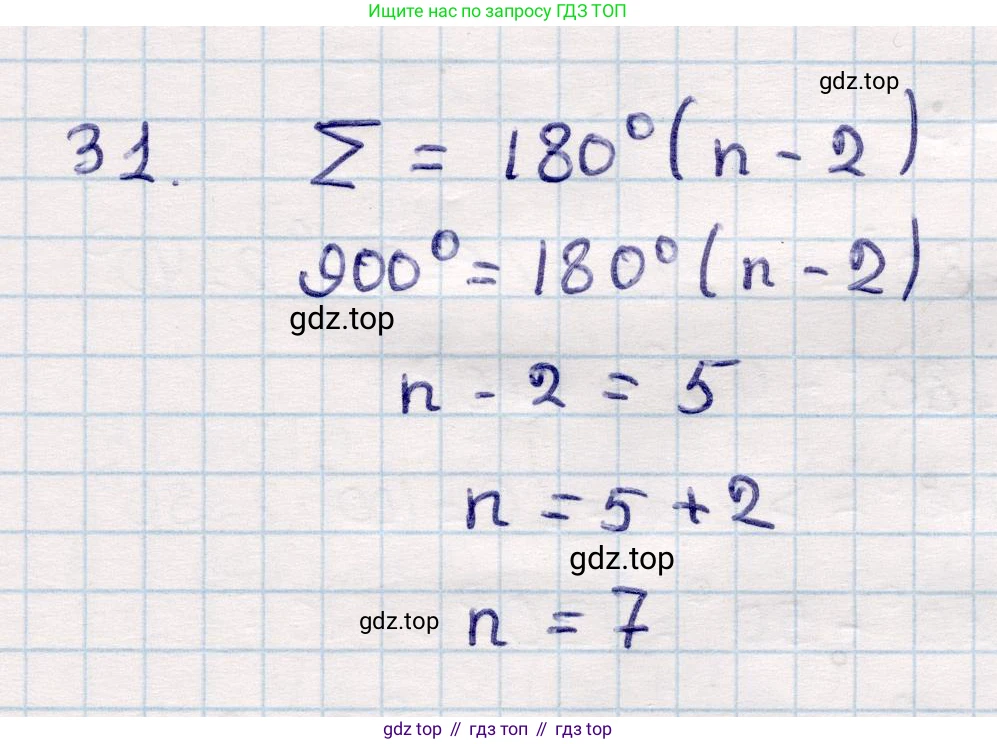 Ищите нас по запросу ГДЗ ТОП
gdz.top
31. Σ = 180° (n - 2)
900° = 180° (n - 2)
gdz.top
n - 2 = 5
n = 5 + 2
gdz.top
gdz.top
n = 7
gdz.top // гдз топ // gdz.top